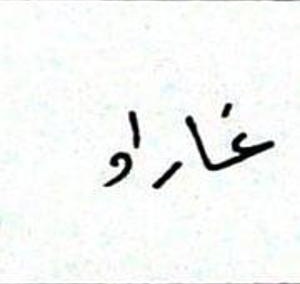 غاراو